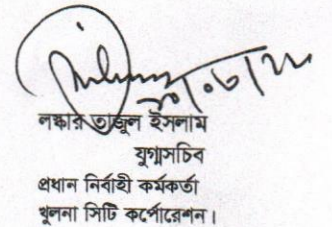 লস্কার তাজুল ইসলাম
যুগ্মসচিব
প্রধান নির্বাহী কর্মকর্তা
খুলনা সিটি কর্পোরেশন।